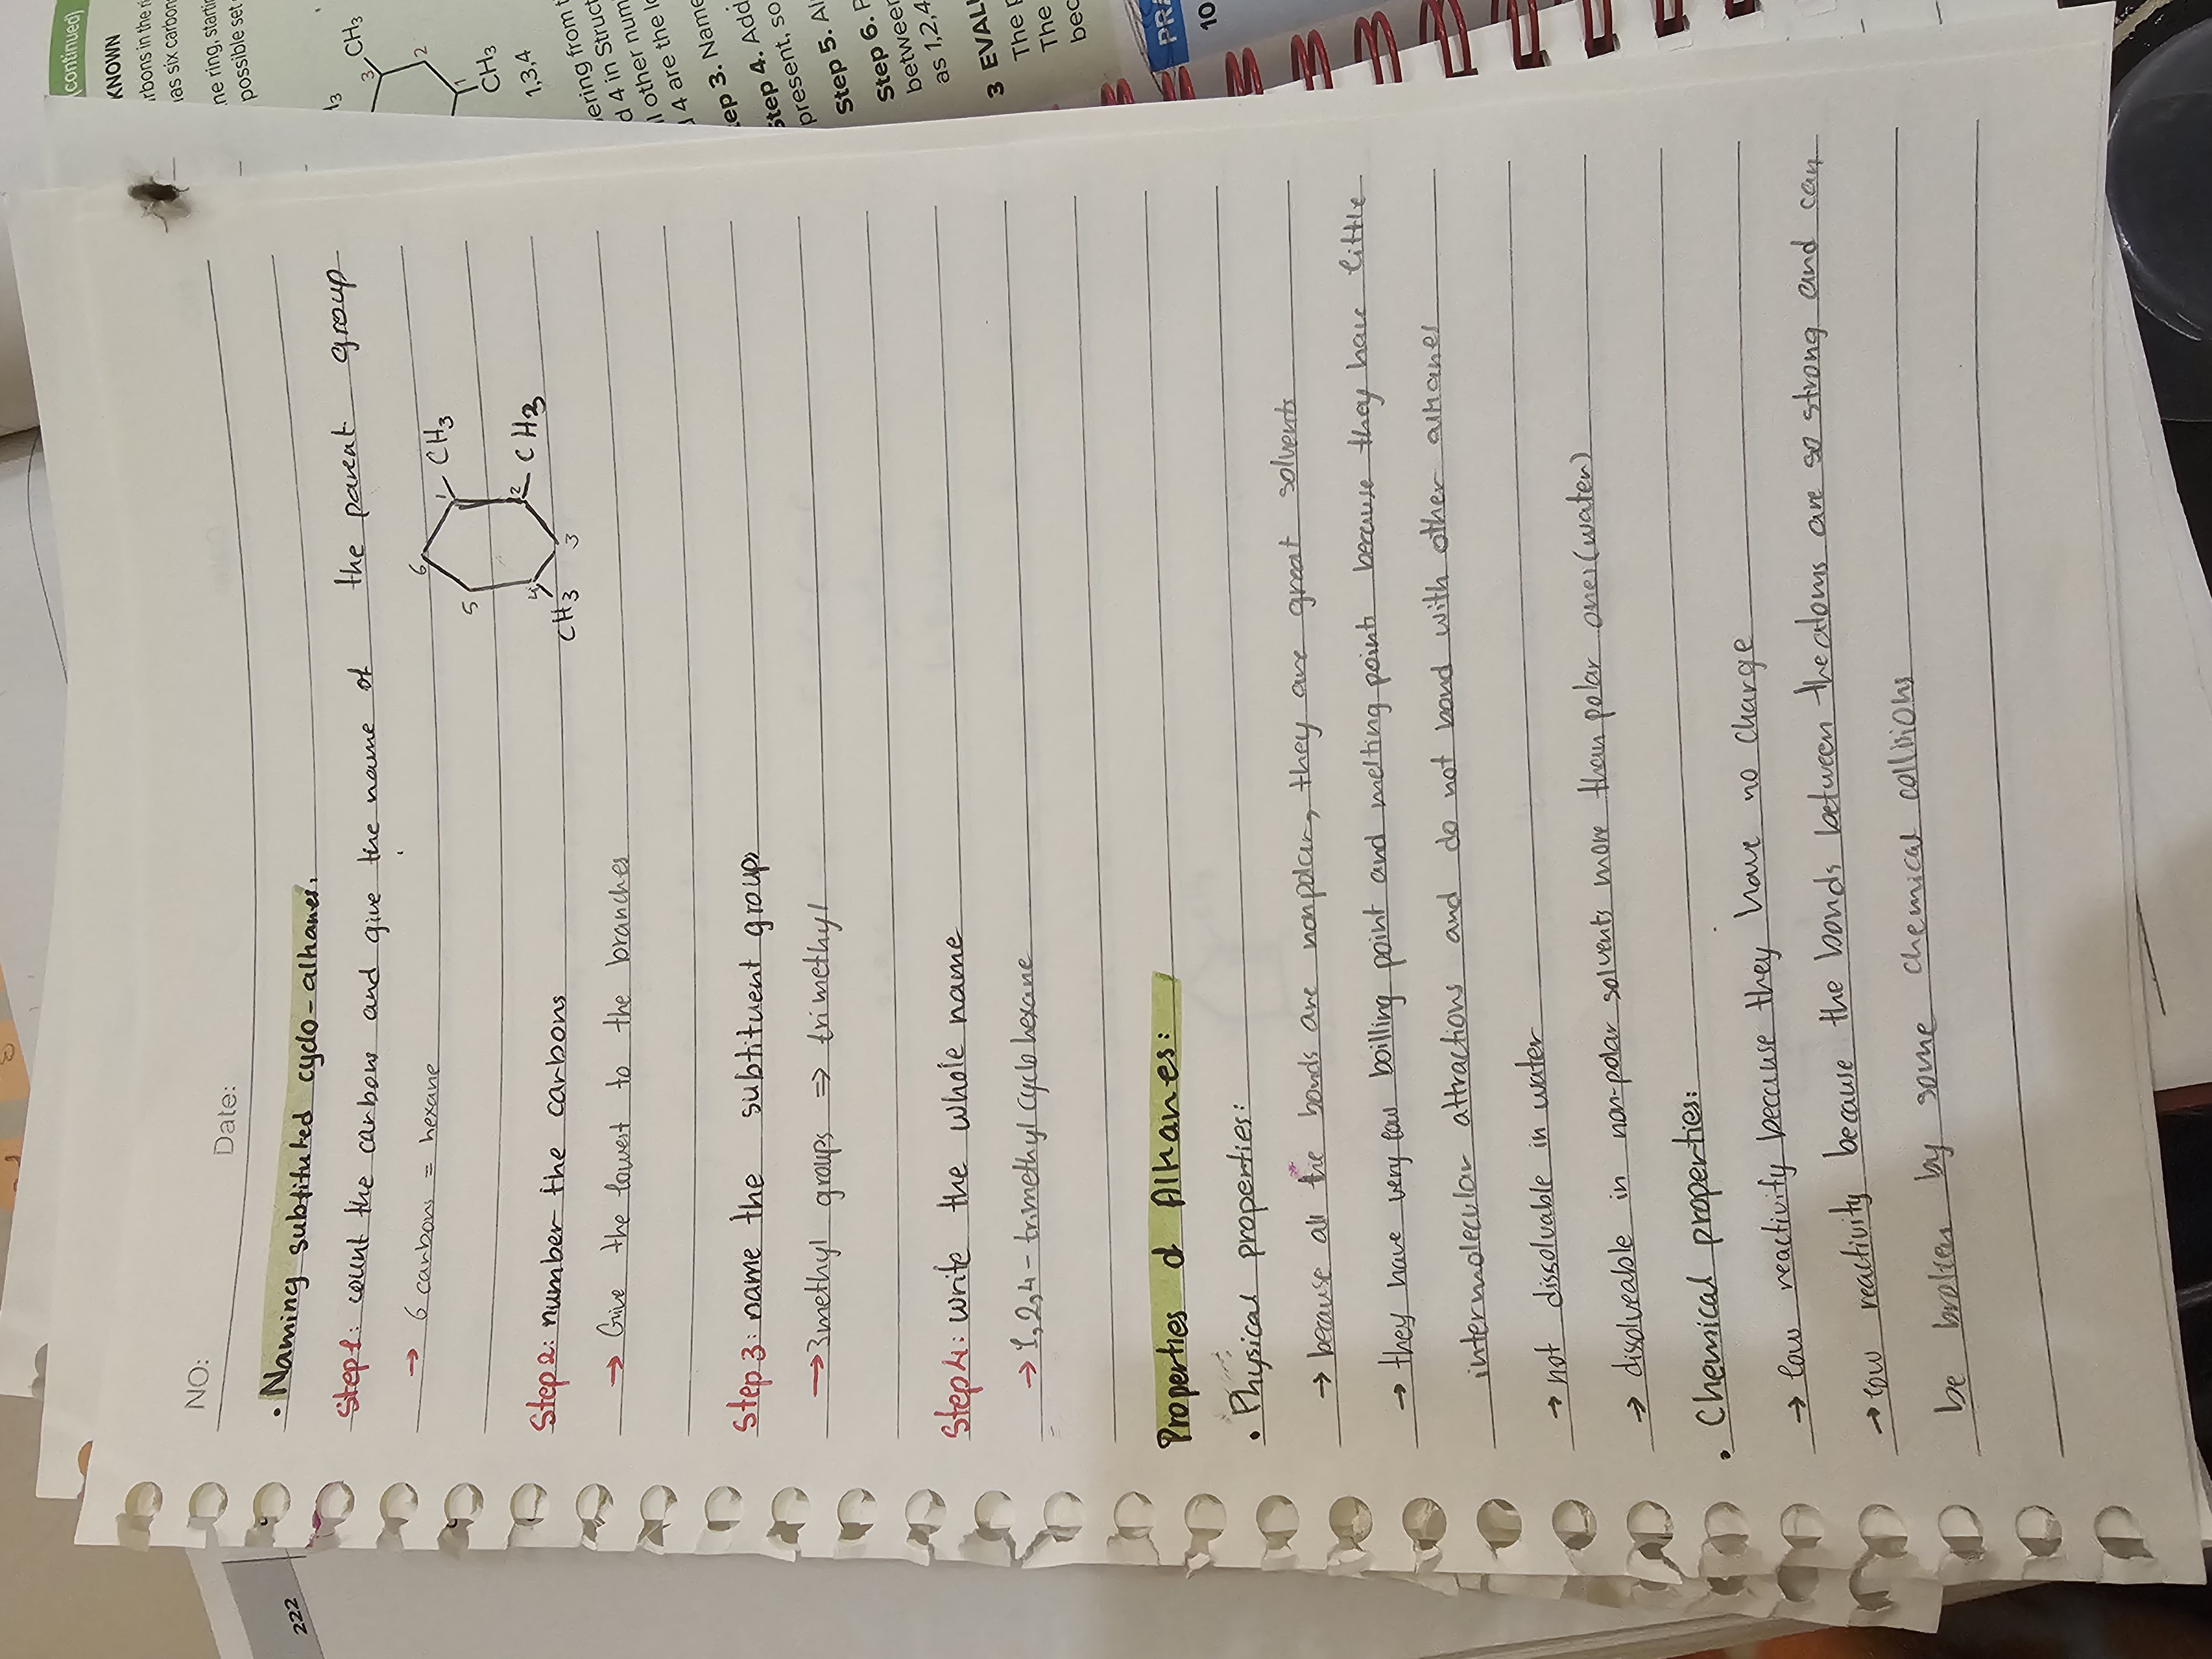 NO:
Date:
• Naming substituted cyclo-alkanes.
Step 1: count the carbons and give the name of the parent group
→ 6 carbons = hexane
6
5
1
CH3
2
CH3
3
4
CH3
Step 2: number the carbons
→ Give the lowest to the branches
Step 3: name the subtituent groups
→ 3 methyl groups ⇒ trimethyl
Step 4: write the whole name
→ 1,2,4-trimethylcyclohexane
Properties of Alkanes:
• Physical properties:
→ because all the bonds are nonpolar, they are great solvents
→ they have very low boilling point and melting points because they have little
intermolecular attractions and do not bond with other alkanes
→ not dissolvable in water
→ disolveable in non-polar solvents more than polar ones (water)
• Chemical properties:
→ low reactivity because they have no charge
→ low reactivity because the bonds between the atoms are so strong and can
be broken by some chemical collisions
222
(continued)
KNOWN
rbons in the ri
as six carbon
ne ring, starti
possible set
3
CH3
2
1
CH3
1,3,4
ering from t
d 4 in Struct
l other num
4 are the lo
ep 3. Name
Step 4. Addi
present, so
Step 5. Al
Step 6. P
between
as 1,2,4
3 EVALU
The p
The
bec
PRA
10